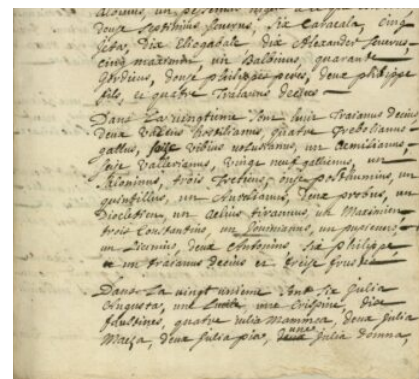 douse septimius severus, six Caracala, cinq
Jetas, Dix Eliogabale dix Alexander severus
cinq maximin, un Balbinus, quarante
Gordiens, douse philippes peres, deux philippe
fils, et quatre Traianus decius
Dans La vingtiesme sont huit Traianus decius
deux valens hostilianus, quatre trebolianus
gallus, seise vibius volusianus, un aemilianus,
seise vallerianus, vingt neuf gallienus, un
Saloninus, trois Tetricus, onse posthumius, un
quintillus, un Aurelianus, deux probus, un
Diocletien, un aelius tirannus, un Maximien
trois Constantins, un Jouinianus, un
un Licinius, deux Antonins six philippe
et un traianus decius et treise frustes
Dans La vingt unieme sont six Julia
Augusta, une une Crispine, dix
faustines, quatre iulia Mammea, deux Julia
Maeza, deux Julia pia, une Julia domna,